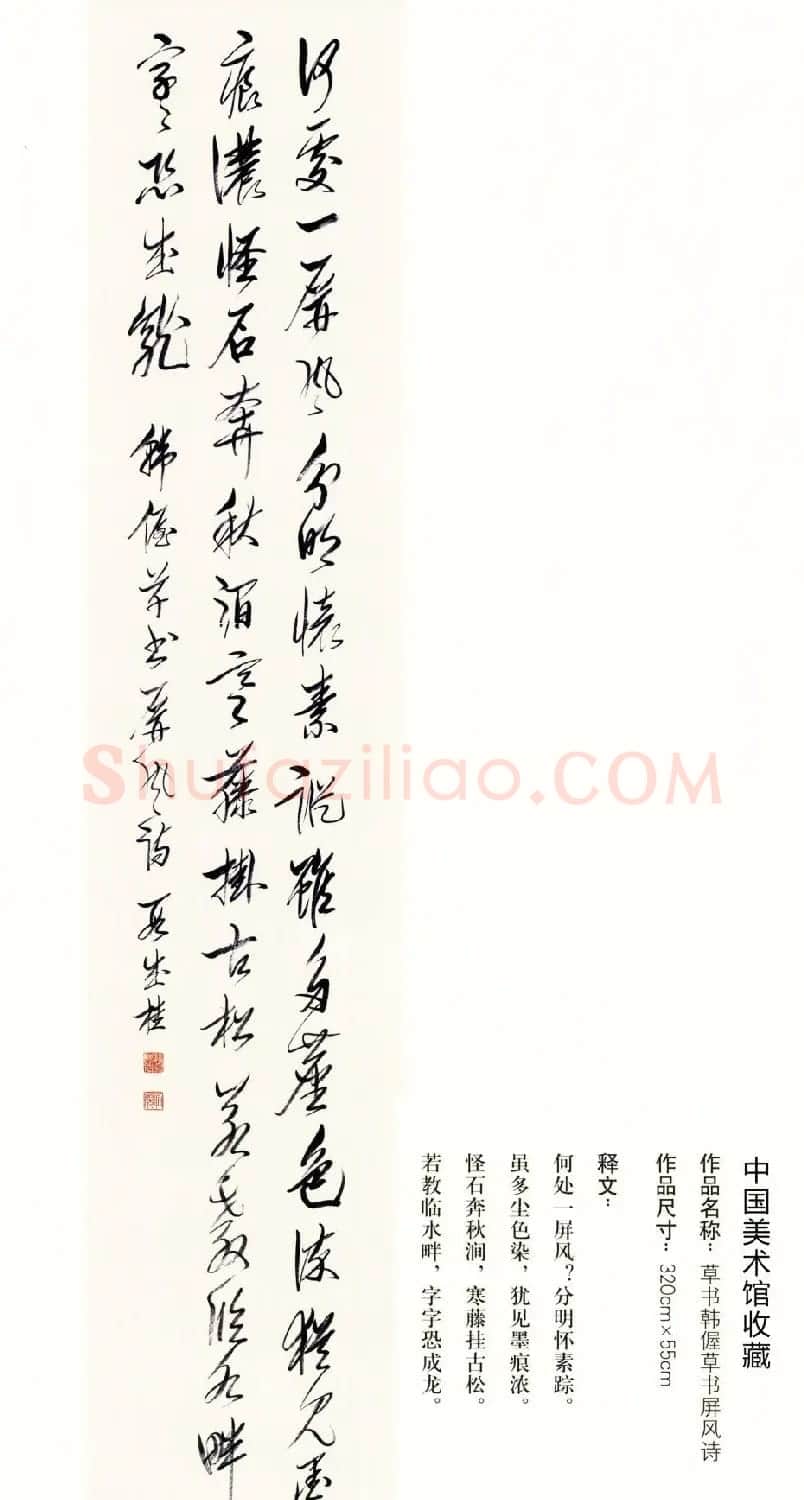 何處一屏风分明懷素踪雖多塵色染猶见墨
痕濃怪石奔秋涧寒藤掛古松若教临水畔
字字恐成龍 韩偓草书屏风诗 夏生桂
Shufaziliao.COM
中国美术馆收藏
作品名称：草书韩偓草书屏风诗
作品尺寸：320cm×55cm
释文：
何处一屏风？分明怀素踪。
虽多尘色染，犹见墨痕浓。
怪石奔秋涧，寒藤挂古松。
若教临水畔，字字恐成龙。